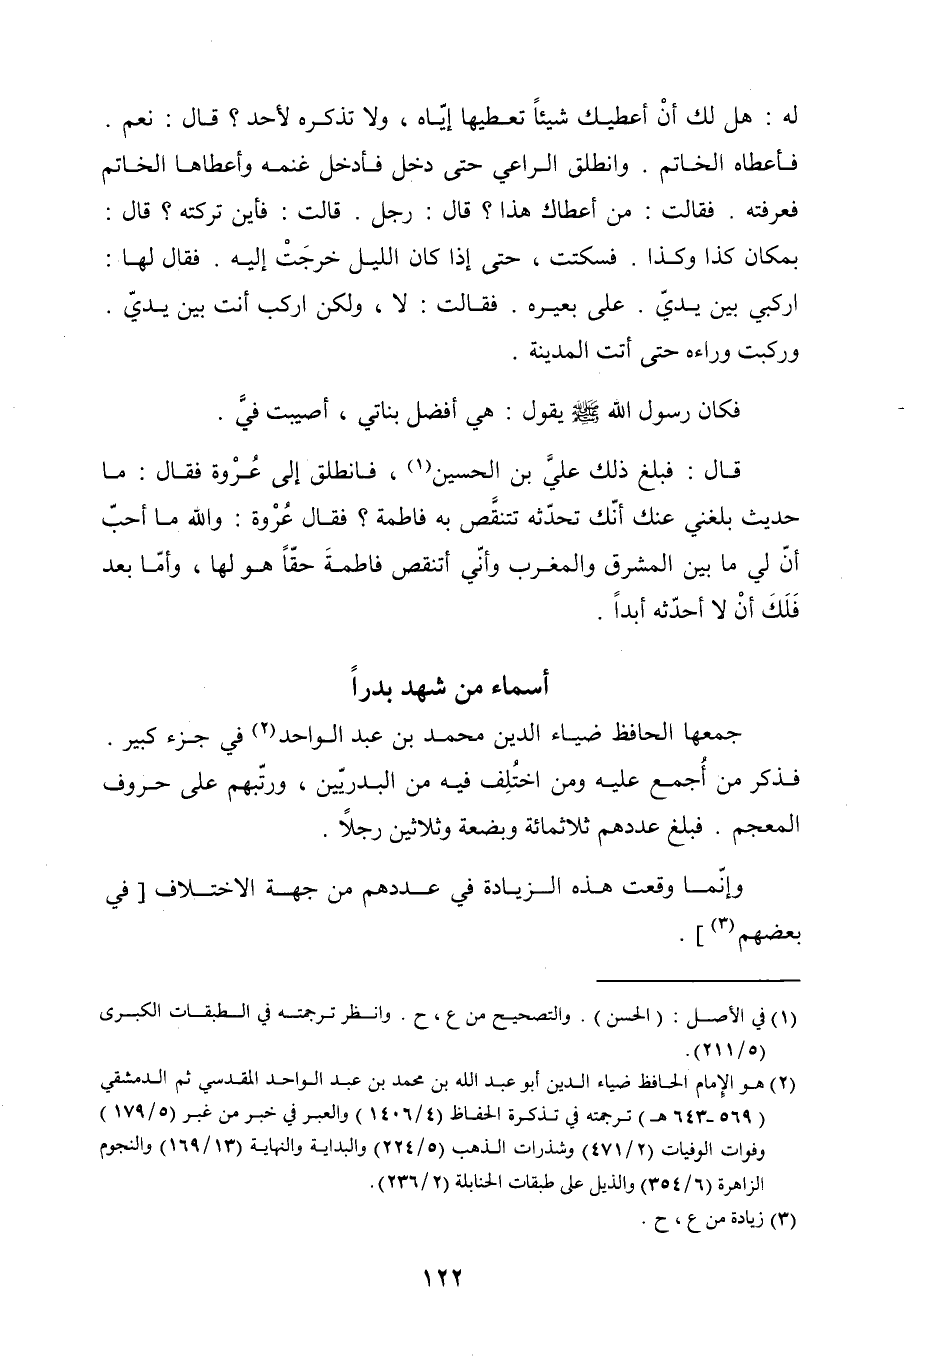 له : هل لك أنْ أعطيك شيئاً تعطيها إيّاه ، ولا تذكره لأحد ؟ قال : نعم .
فأعطاه الخاتم . وانطلق الراعي حتى دخل فأدخل غنمه وأعطاها الخاتم
فعرفته . فقالت : من أعطاك هذا ؟ قال : رجل . قالت : فأين تركته ؟ قال :
بمكان كذا وكذا . فسكتت ، حتى إذا كان الليل خرجَتْ إليه . فقال لها :
اركبي بين يديّ . على بعيره . فقالت : لا ، ولكن اركب أنت بين يديّ .
وركبت وراءه حتى أتت المدينة .
فكان رسول الله ﷺ يقول : هي أفضل بناتي ، أصيبت فيَّ .
قال : فبلغ ذلك عليَّ بن الحسين(١) ، فانطلق إلى عُرْوة فقال : ما
حديث بلغني عنك أنّك تحدّثه تتنقَّص به فاطمة ؟ فقال عُرْوة : والله ما أحبّ
أنّ لي ما بين المشرق والمغرب وأنّي أتنقص فاطمةَ حقّاً هو لها ، وأمّا بعد
فَلَكَ أنْ لا أحدّثه أبداً .
أسماء من شهد بدراً
جمعها الحافظ ضياء الدين محمد بن عبد الواحد(٢) في جزء كبير .
فذكر من أُجمع عليه ومن اختُلِف فيه من البدريّين ، ورتّبهم على حروف
المعجم . فبلغ عددهم ثلاثمائة وبضعة وثلاثين رجلاً .
وإنّما وقعت هذه الزيادة في عددهم من جهة الاختلاف [ في
بعضهم(٣) ] .
(١) في الأصل : ( الحسن ) . والتصحيح من ع ، ح . وانظر ترجمته في الطبقات الكبرى
(٥/ ٢١١).
(٢) هو الإمام الحافظ ضياء الدين أبو عبد الله بن محمد بن عبد الواحد المقدسي ثم الدمشقي
( ٥٦٩ـ ٦٤٣ هـ) ترجمته في تذكرة الحفاظ (٤/ ١٤٠٦ ) والعبر في خبر من غبر (٥/ ١٧٩ )
وفوات الوفيات (٢/ ٤٧١) وشذرات الذهب (٥/ ٢٢٤) والبداية والنهاية (١٣/ ١٦٩) والنجوم
الزاهرة (٦/ ٣٥٤) والذيل على طبقات الحنابلة (٢/ ٢٣٦).
(٣) زيادة من ع ، ح .
١٢٢